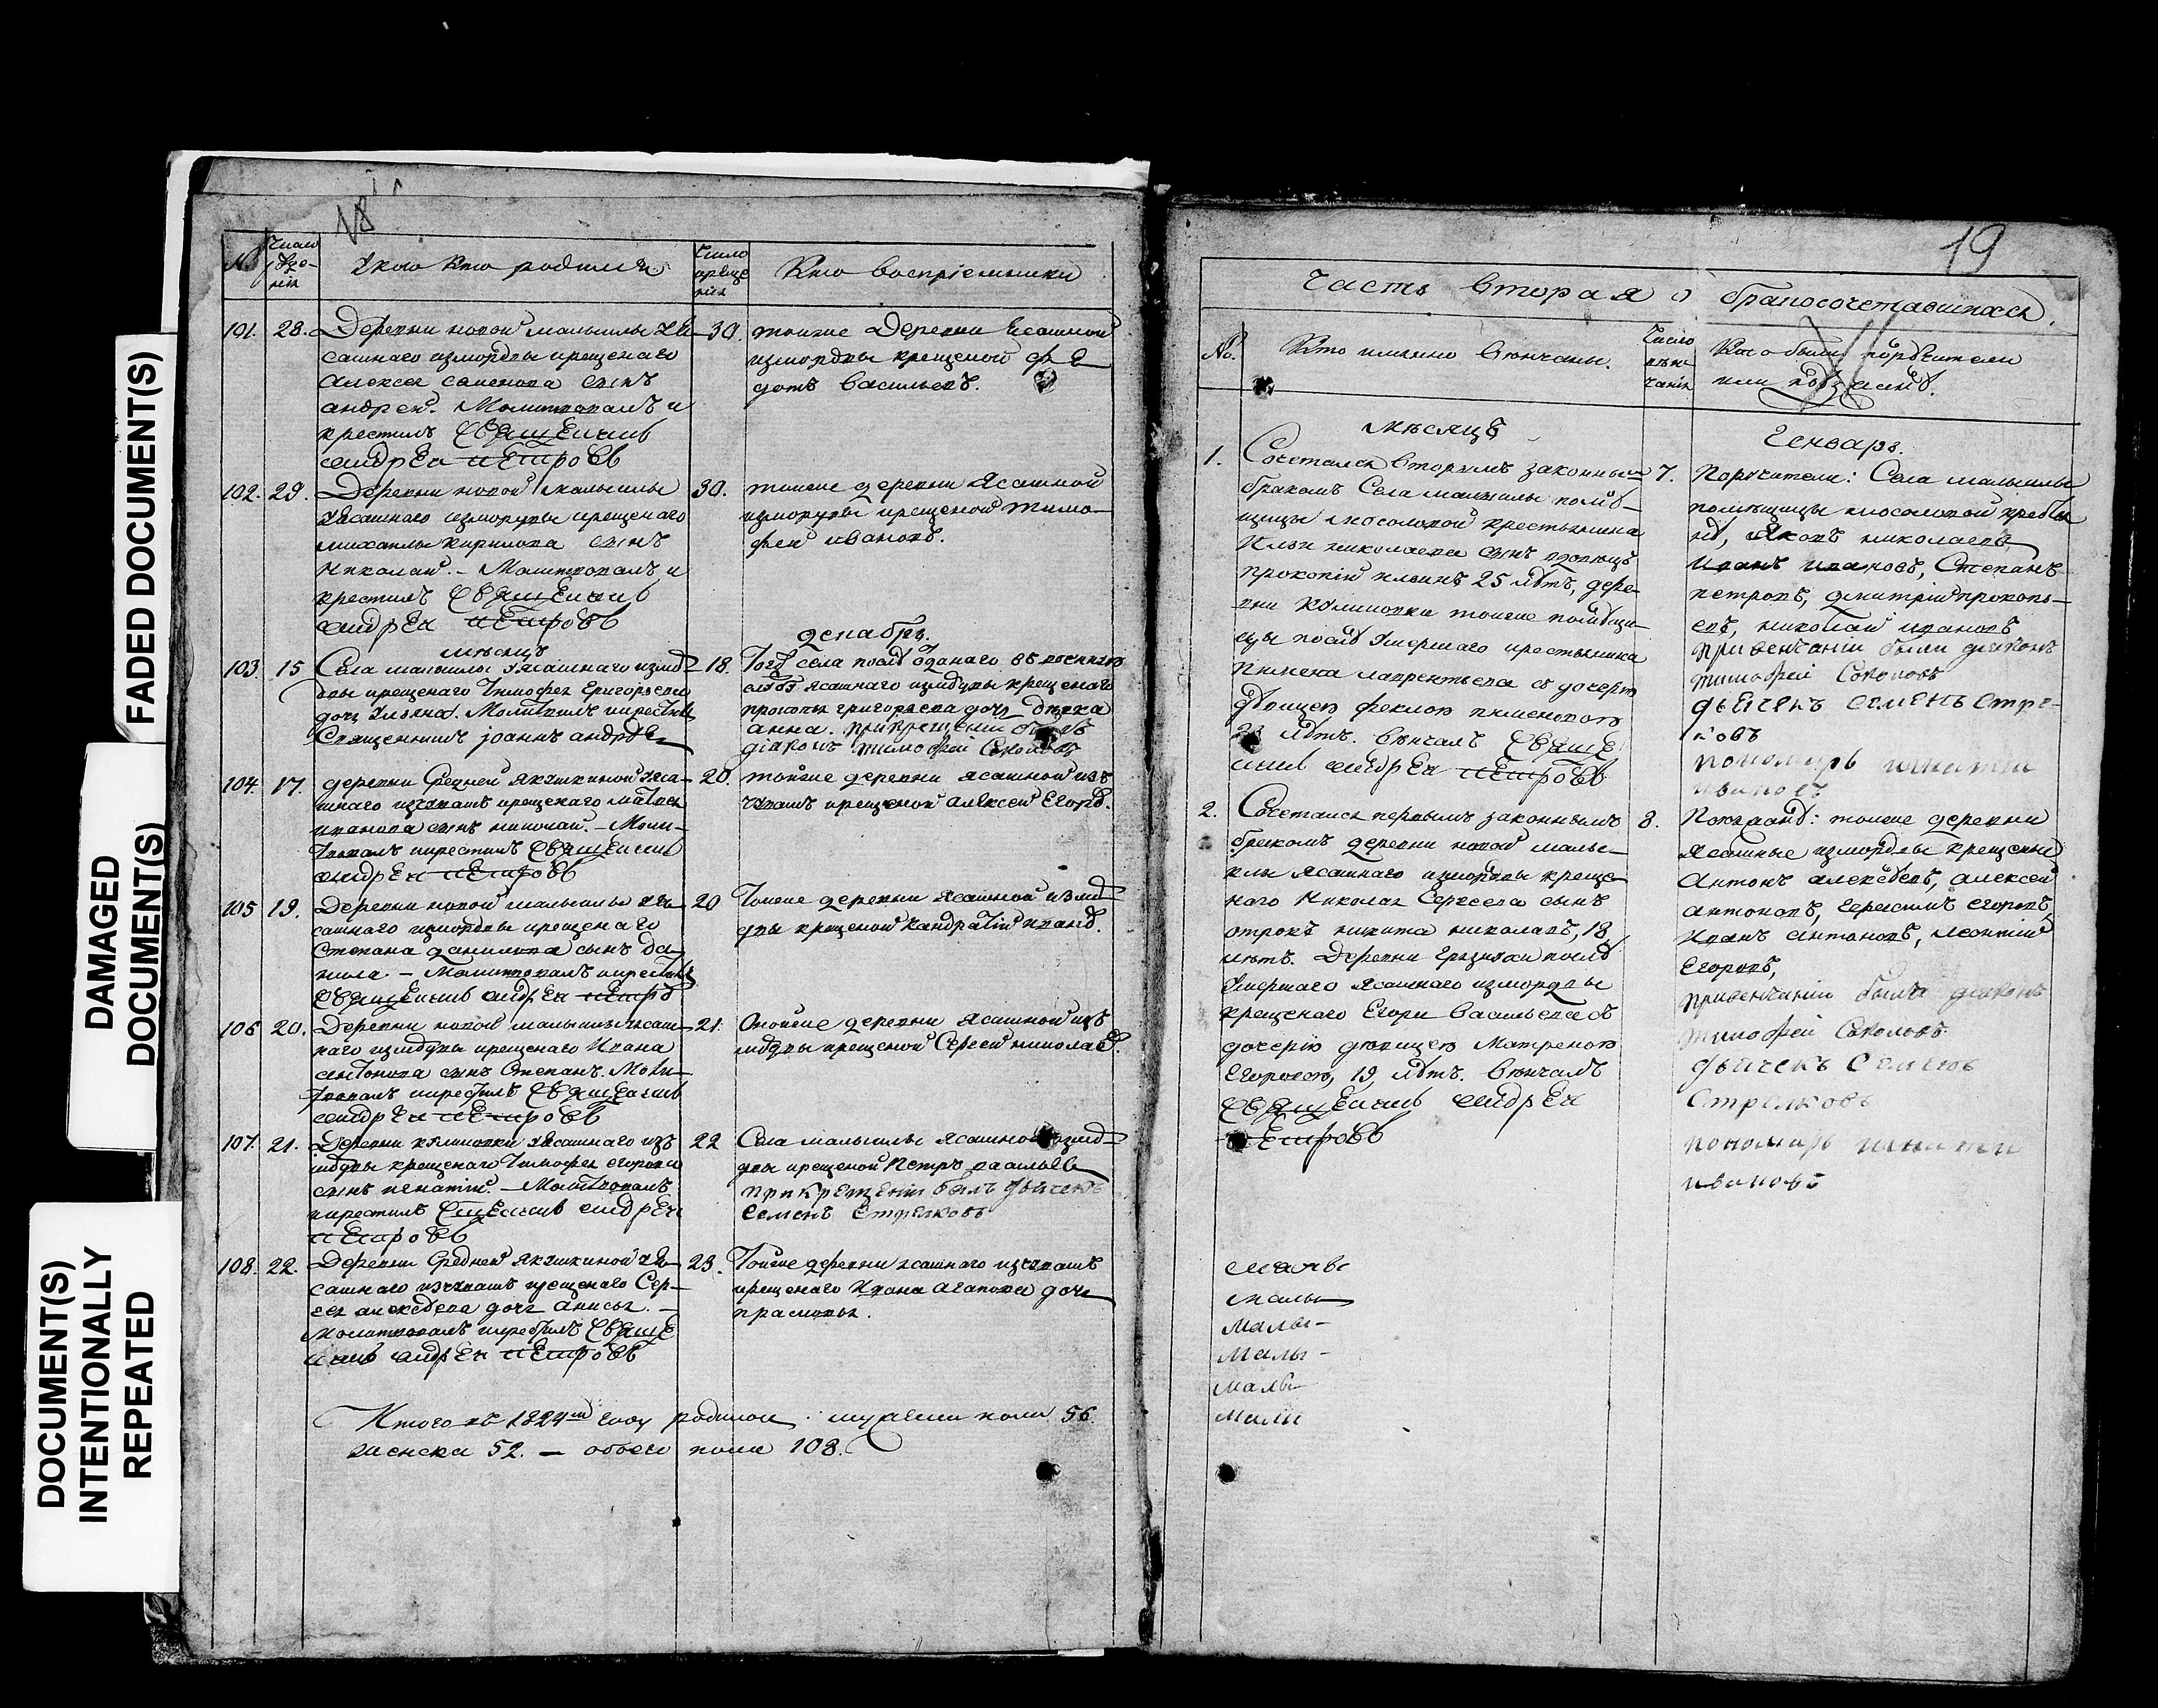 FADED DOCUMENT(S)
DAMAGED
DOCUMENT(S)
DOCUMENT(S)
INTENTIONALLY
REPEATED
18
№
Число
рожде-
нія
У кого кто родился.
Число
креще
нія
Кто воспріемники
101. 28. Деревни новой малыклы Уя-
сашнаго измордвы крещенаго
Алексея семенова сынъ
андрей. Молитвовалъ и
крестилъ Священникъ
андрей петровъ
30. тойже деревни Ясашной
измордвы крещеной фе
дотъ васильевъ.
102. 29. Деревни новой малыклы
Уясашнаго измордвы крещенаго
михайлы кирилова сынъ
Николай. - Молитвовалъ и
крестилъ Священникъ
андрей петровъ
30. тойже деревни Ясашной
измордвы крещеной тимо-
фей ивановъ.
мѣсяцъ декабрь.
103. 15 Села малыклы Уясашнаго измор-
двы крещенаго Тимофея Григорьева
дочь Ульяна. Молитвилъ икрестилъ
Священникъ іоаннъ андреевъ
18. села послѣ отданаго въ военную
службу ясашнаго измордвы крещенаго
прокопья григорьева дочь дѣвка
анна. при крещеніи былъ
діаконъ тимофей Соколовъ
104. 17. деревни Средней Якушкиной Уяса-
шнаго изчувашъ крещенаго Матвея
иванова сынъ николай. - Моли-
твовалъ икрестилъ Священникъ
андрей петровъ
20. тойже деревни ясашной изъ
чувашъ крещеной алексей Егоровъ.
105 19. Деревни новой малыклы Уя-
сашнаго измордвы крещенаго
Степана данилова сынъ да-
нила. - Молитвовалъ икрестилъ
Священникъ андрей петровъ
20 Тойже деревни Ясашной измор-
двы крещеной Кандратій иванов.
106 20. Деревни новой малыклы Уясаш-
наго измордвы крещенаго Ивана
антонова сынъ Степанъ. Моли-
твовалъ икрестилъ Священникъ
андрей петровъ
21. Онойже деревни Ясашной изъ
мордвы крещеной Сергей николаев.
107. 21. Деревни Уясашнаго изъ
мордвы крещенаго Тимофея егорова
сынъ игнатій. - Молитвовалъ
икрестилъ Священникъ андрей
петровъ
22 Села малыклы Ясашной измор-
двы крещеной Петръ васильевъ
при крещеніи былъ дьячекъ
Семенъ Стрелковъ
108. 22. Деревни Средней Якушкиной Уя-
сашнаго изчувашъ крещенаго Сер-
гея алексеева дочь анисья. -
Молитвовалъ икрестилъ Свяще
нникъ андрей петровъ
23. Тойже деревни ясашнаго изчувашъ
крещенаго Ивана Агапова дочь
прасковья.
Итого въ 1824мъ году родилось: мужеска пола 56
женска 52. — обоего пола 108.
19
Часть вторая о бракосочетавшихся.
№.
Кто именно венчаны.
Число
венча
чанія
Кто были поручители
или поѣзжане.
мѣсяцъ Генварь.
1. Сочетался вторымъ законнымъ
бракомъ Села малыклы помѣ-
щицы мосоловой крестьянина
Ильи николаева сынъ вдовецъ
прокопій ильинъ 25 лѣтъ, дере-
вни тойже помѣщи-
цы послѣ Умершаго крестьянина
Пимена лаврентьева съ дочерью
дѣвицею феклою пименовою
23 лѣтъ. Венчалъ Свяще
нникъ андрей петровъ
7. Поручители: Села малыклы
помѣщицы мосоловой крестья
не, Яковъ николаевъ,
Иванъ ивановъ, Степанъ
петровъ, димитрій прокопь-
евъ, николай ивановъ
при венчаніи были діаконъ
тимофей Соколовъ
дьячекъ семенъ Стрел-
ковъ
пономарь игнатій
ивановъ
2. Сочетался первымъ законнымъ
бракомъ деревни новой малы-
клы Ясашнаго измордвы креще-
наго Николая Сергеева сынъ
отрокъ никита николаевъ, 18
лѣтъ. Деревни послѣ
Умершаго Ясашнаго измордвы
крещенаго Егора Васильева съ
дочерію девицею Матреною
Егоровою, 19, лѣтъ. Венчалъ
Священникъ андрей
петровъ
8. Поезжане: тойже деревни
Ясашные измордвы крещеные
Антонъ алексеевъ, алексей
антоновъ, герасимъ егоровъ,
Иванъ антоновъ, леонтій
Егоровъ,
при венчаніи были діаконъ
тимофей Соколовъ
дьячекъ Семенъ
Стрелковъ
пономарь игнатій
ивановъ
малы
малы
малы-
малы -
малы
малы